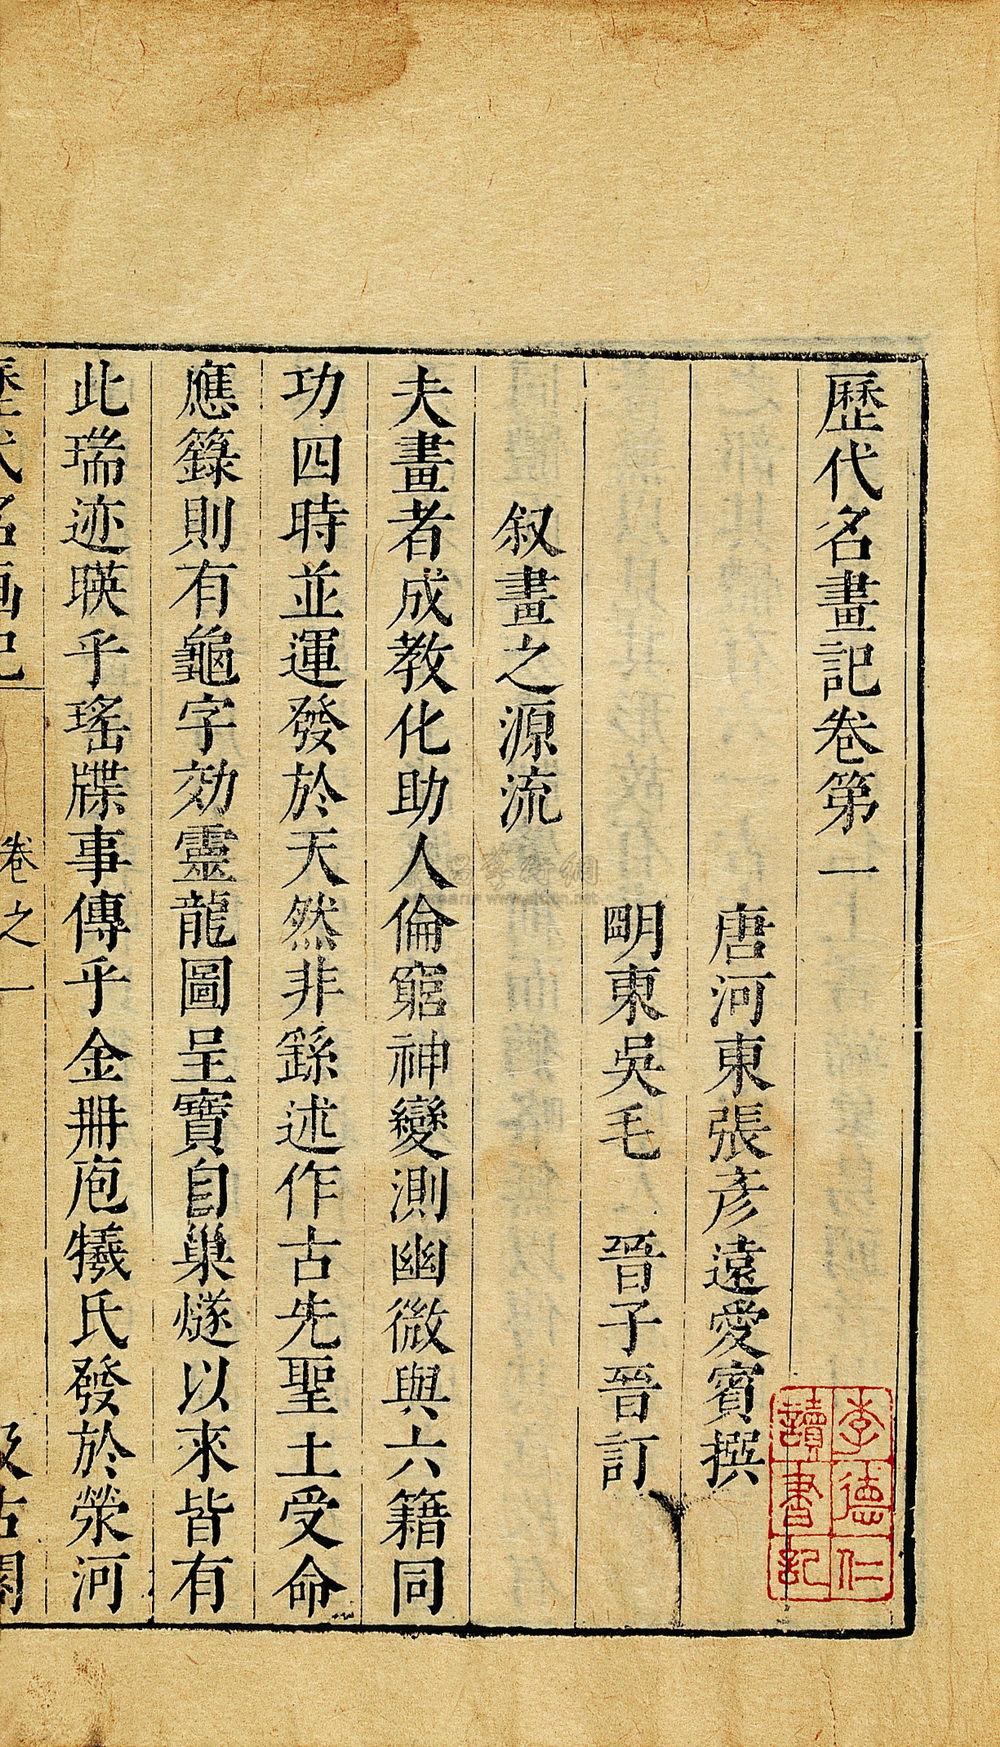 歷代名畫記卷第一
唐河東張彥遠愛賓撰
明東吳毛 晉子晉訂
叙畫之源流
夫畫者成教化助人倫窮神變測幽微與六籍同
功四時並運發於天然非繇述作古先聖王受命
應籙則有龜字効靈龍圖呈寶自巢燧以來皆有
此瑞迹暎乎瑤牒事傳乎金冊庖犧氏發於滎河
歷代名畫記 卷之一 汲古閣
李德仁
讀書記